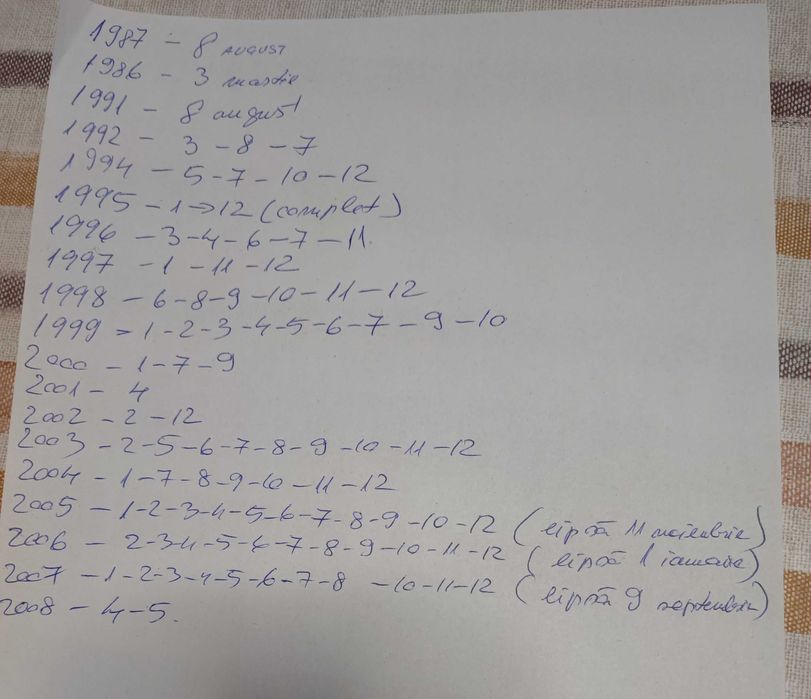 1987 - 8 AUGUST
1986 - 3 martie
1991 - 8 august
1992 - 3 - 8 - 7
1994 - 5 - 7 - 10 - 12
1995 - 1 → 12 (complet)
1996 - 3 - 4 - 6 - 7 - 11.
1997 - 1 - 11 - 12
1998 - 6 - 8 - 9 - 10 - 11 - 12
1999 - 1 - 2 - 3 - 4 - 5 - 6 - 7 - 9 - 10
2000 - 1 - 7 - 9
2001 - 4
2002 - 2 - 12
2003 - 2 - 5 - 6 - 7 - 8 - 9 - 10 - 11 - 12
2004 - 1 - 7 - 8 - 9 - 10 - 11 - 12
2005 - 1 - 2 - 3 - 4 - 5 - 6 - 7 - 8 - 9 - 10 - 12 (lipsă 11 noiembrie)
2006 - 2 - 3 4 - 5 - 6 - 7 - 8 - 9 - 10 - 11 - 12 (lipsă 1 ianuarie)
2007 - 1 - 2 - 3 - 4 - 5 - 6 - 7 - 8 - 10 - 11 - 12 (lipsă 9 septembrie)
2008 - 4 - 5.